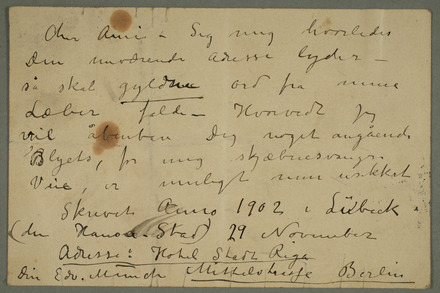 Cher Ami – Sig mig hvorledes
Din nuværende adresse lyder –
så skal gyldne ord fra mine
Læber falde – Hvorvedt jeg
vil åbenbare Dig noget angående
Blyets, for mig skjæbnesvangre
Vine, er muligt men usikkert
Skrevet Anno 1902 i Lübeck
(den Hansa-Stad) 29 November
Adresse: Hotel Stadt Riga
din Edv. Munch Mittelstrasse Berlin